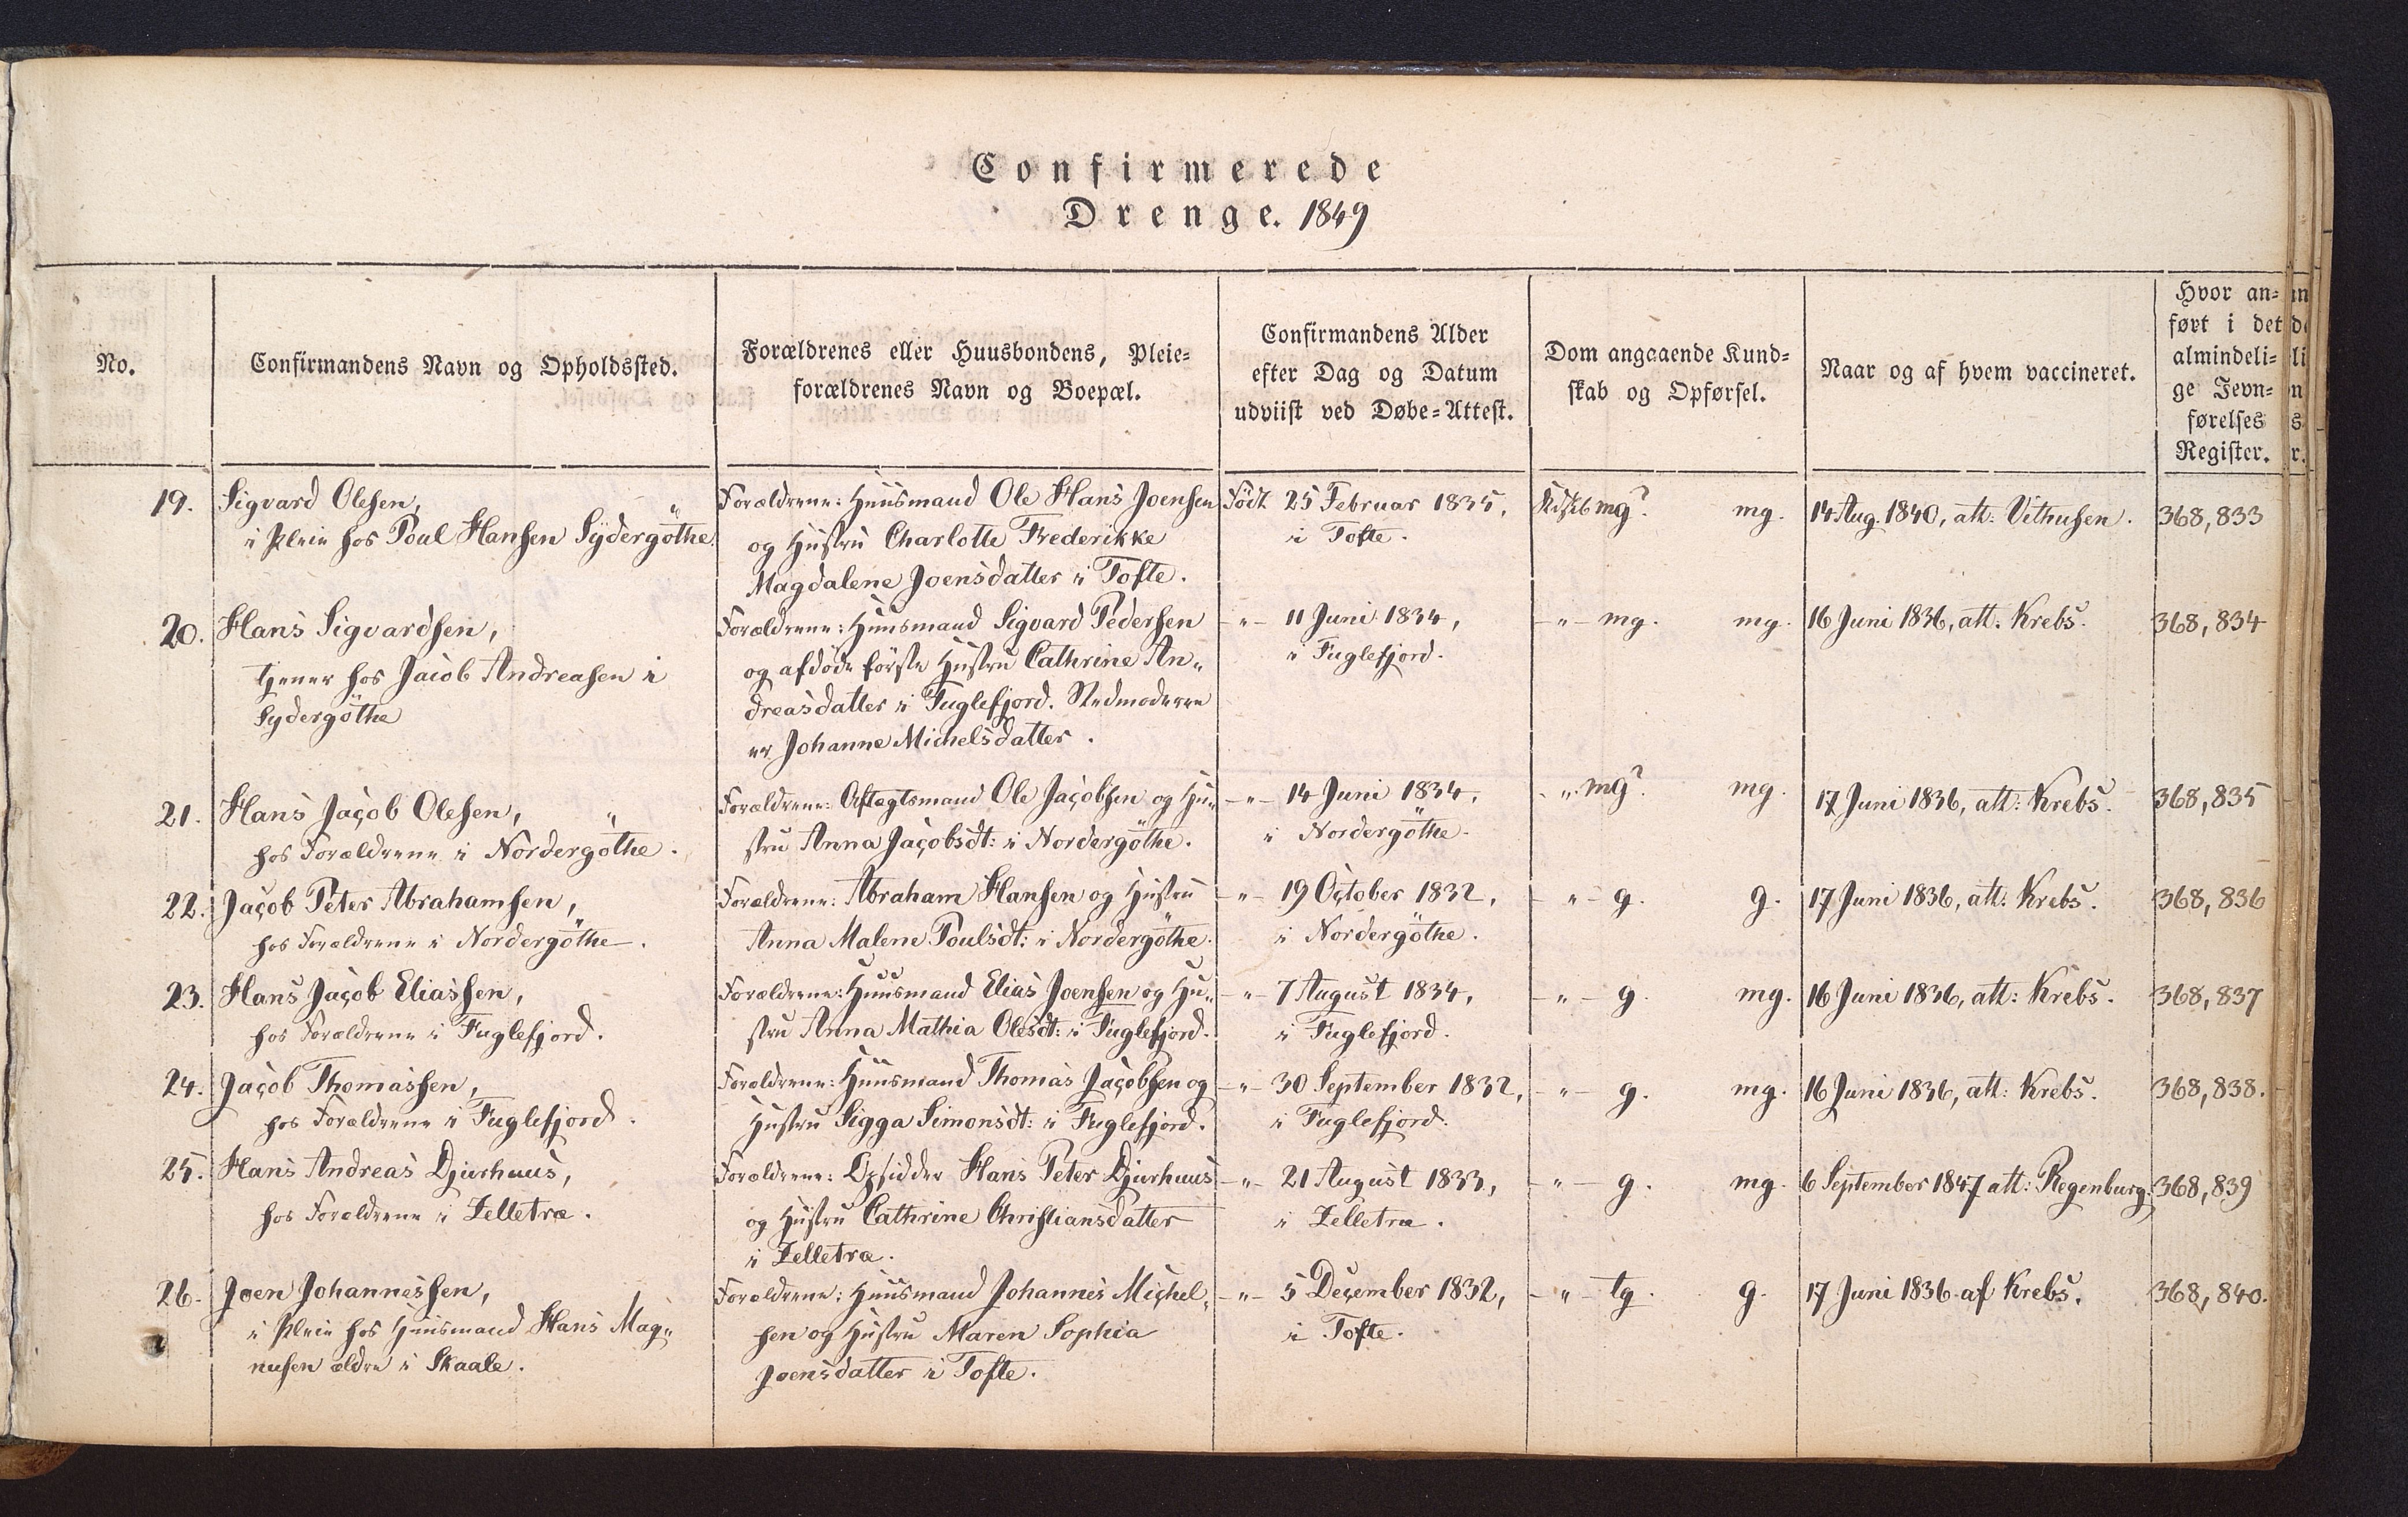 Confirmerede
Drenge. 1849
No.
Confirmandens Navn og Opholdssted.
Forældrenes eller Huusbondens, Pleie-
forældrenes Navn og Boepæl.
Confirmandens Alder
efter Dag og Datum
udviist ved Døbe-Attest.
Dom angaaende Kund-
skab og Opførsel.
Naar og af hvem vaccineret.
Hvor an-
ført i det
almindeli-
ge Jevn-
førelses
Register.
19.
Sigvard Olesen,
i Pleie hos Poul Hansen Sydergöthe.
Forældrene: Huusmand Ole Hans Joensen
og Hustru Charlotte Frederikke
Magdalene Joensdatter i Tofte.
Födt 25 Februar 1835,
i Tofte.
Kdskb mg? mg.
14 Aug. 1840, att: Vithusen.
368,833
20.
Hans Sigvardsen,
tjener hos Jacob Andreasen i
Sydergöthe
Forældrene: Huusmand Sigvard Pedersen
og afdöde förste Hustru Cathrine An„
dreasdatter i Fuglefjord. Stedmoderen
er Johanne Michelsdatter.
-"- 11 Juni 1834,
i Fuglefjord.
-"- mg. mg.
16 Juni 1836, att. Krebs.
368,834
21.
Hans Jacob Olesen,
hos Forældrene i Nordergöthe.
Forældrene: Aftægtsmand Ole Jacobsen og Hu„
stru Anna Jacobsdt: i Nordergöthe.
-"- 14 Juni 1834,
i Nordergöthe.
-"- mg? mg.
17 Juni 1836, att: Krebs.
368,835
22.
Jacob Peter Abrahamsen,
hos Forældrene i Nordergöthe.
Forældrene: Abraham Hansen og Hustru
Anna Malene Poulsdt: i Nordergöthe.
-"- 19 October 1832,
i Nordergöthe.
-"- g. g.
17 Juni 1836, att: Krebs.
368,836
23.
Hans Jacob Eliassen,
hos Forældrene i Fuglefjord.
Forældrene: Huusmand Elias Joensen og Hu„
stru Anna Mathia Olesdt: i Fuglefjord.
-"- 7 August 1834,
i Fuglefjord.
-"- g. mg.
16 Juni 1836, att: Krebs.
368,837
24.
Jacob Thomassen,
hos Forældrene i Fuglefjord.
Forældrene: Huusmand Thomas Jacobsen og
Hustru Sigga Simonsdt: i Fuglefjord.
-"- 30 September 1832,
i Fuglefjord.
-"- g. mg.
16 Juni 1836, att: Krebs.
368,838.
25.
Hans Andreas Djurhuus,
hos Forældrene i Zelletræ.
Forældrene: Opsidder Hans Peter Djurhuus
og Hustru Cathrine Christiansdatter
i Zelletræ.
-"- 21 August 1833,
i Zelletræ.
-"- g. mg.
6 September 1847 att: Regenburg.
368,839
26.
Joen Johannessen,
i Pleie hos Huusmand Hans Mag„
nusen ældre i Skaale.
Forældrene: Huusmand Johannes Michel„
sen og Hustru Maren Sophia
Joensdatter i Tofte.
-"- 5 December 1832,
i Tofte.
-"- tg. g.
17 Juni 1836 af Krebs.
368,840.